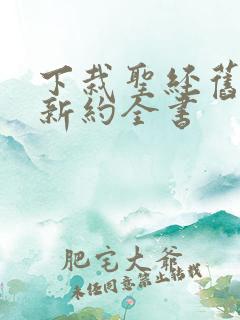 下裁聖經舊
新約全書
肥宅大爷
未经同意禁止转载